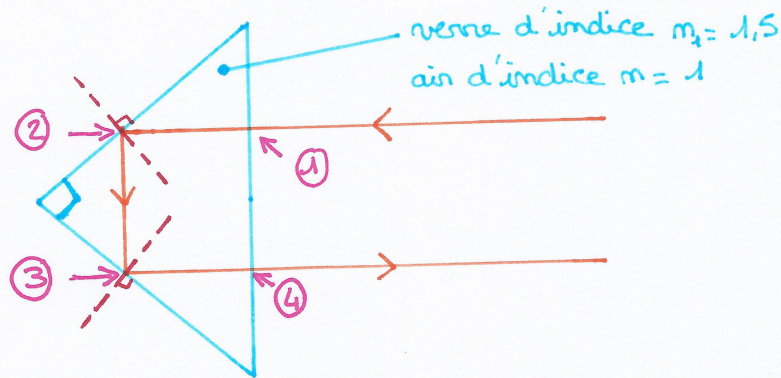 verre d'indice n₁ = 1,5
air d'indice n = 1
②
①
③
④